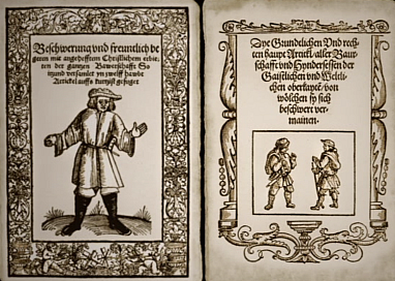 Beschwerung vnd freuntlich be
geren mit angehefftem Christlichem erbie,
ten der gantzen Bawerschafft So
itzund versamlet yn zwelff hawbt
Artickel auffs kurtzist gefuget
Dye Grundtlichen Vnd rech,
ten haupt Artickel aller Baur,
schafft vnd Hyndersessen der
Gaistlichen vnd Weltli,
chen oberkayt, von
wölchen sy sich
beschwert ver,
mainen.